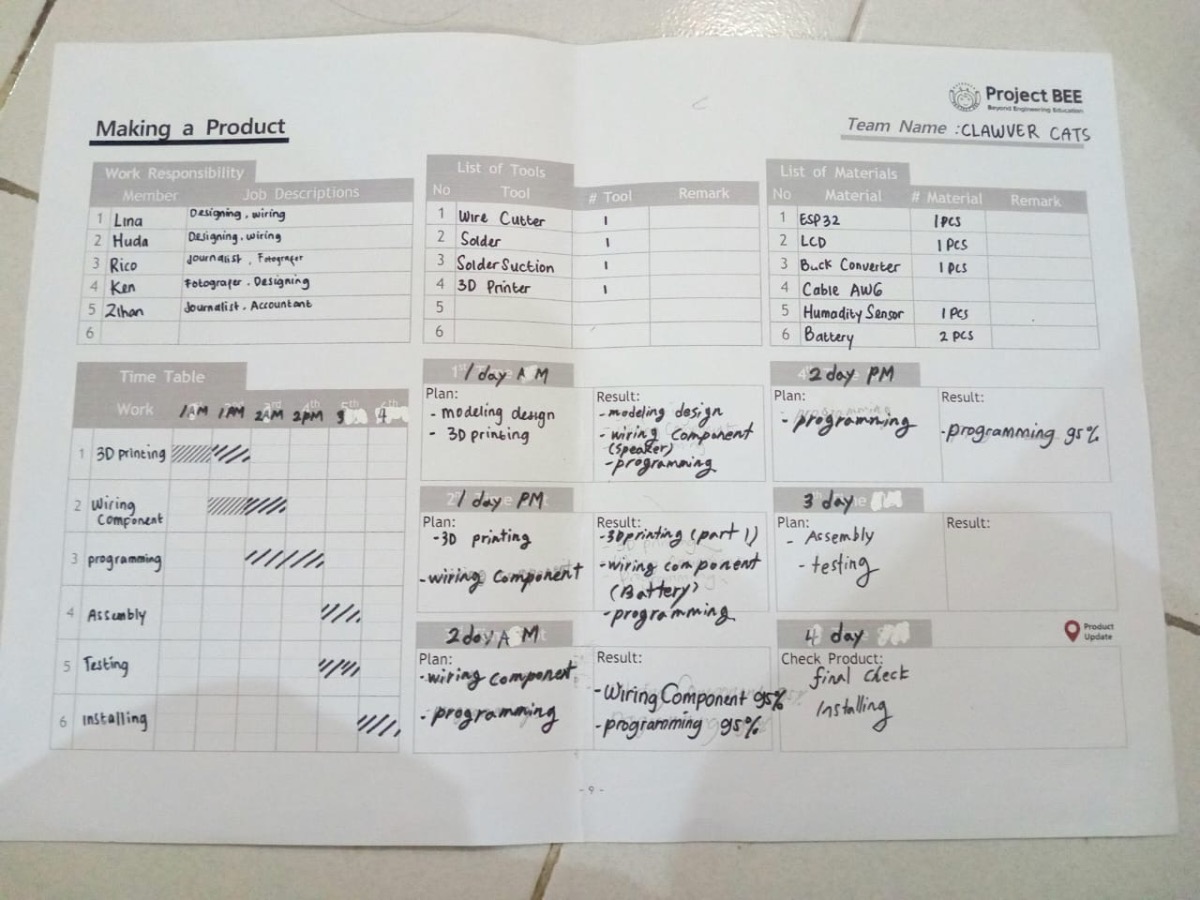 Project BEE
Beyond Engineering Education
Making a Product
Team Name : CLAWVER CATS
Work Responsibility
Member Job Descriptions
1 Lina Designing, wiring
2 Huda Designing, wiring
3 Rico Journalist, Fotografer
4 Ken Fotografer, Designing
5 Zihan Journalist, Accountant
6
List of Tools
No Tool # Tool Remark
1 Wire Cutter 1
2 Solder 1
3 Solder Suction 1
4 3D Printer 1
5
6
List of Materials
No Material # Material Remark
1 ESP32 1 PCS
2 LCD 1 PCS
3 Buck Converter 1 PCS
4 Cable AWG
5 Humadity Sensor 1 PCS
6 Battery 2 PCS
Time Table
Work 1 AM 1 PM 2 AM 2 PM 3 4
1 3D printing
2 Wiring
Component
3 programming
4 Assembly
5 Testing
6 installing
1 day AM
Plan:
- modeling design
- 3D printing
Result:
- modeling design
- wiring component
(speaker)
- programming
1 day PM
Plan:
- 3D printing
- wiring component
Result:
- 3D printing (part 1)
- wiring component
(Battery)
- programming
2 day AM
Plan:
- wiring component
- programming
Result:
- Wiring Component 95%
- programming 95%
2 day PM
Plan:
- programming
Result:
- programming 95%
3 day
Plan:
- Assembly
- testing
Result:
4 day
Product
Update
Check Product:
final check
Installing
- 9 -